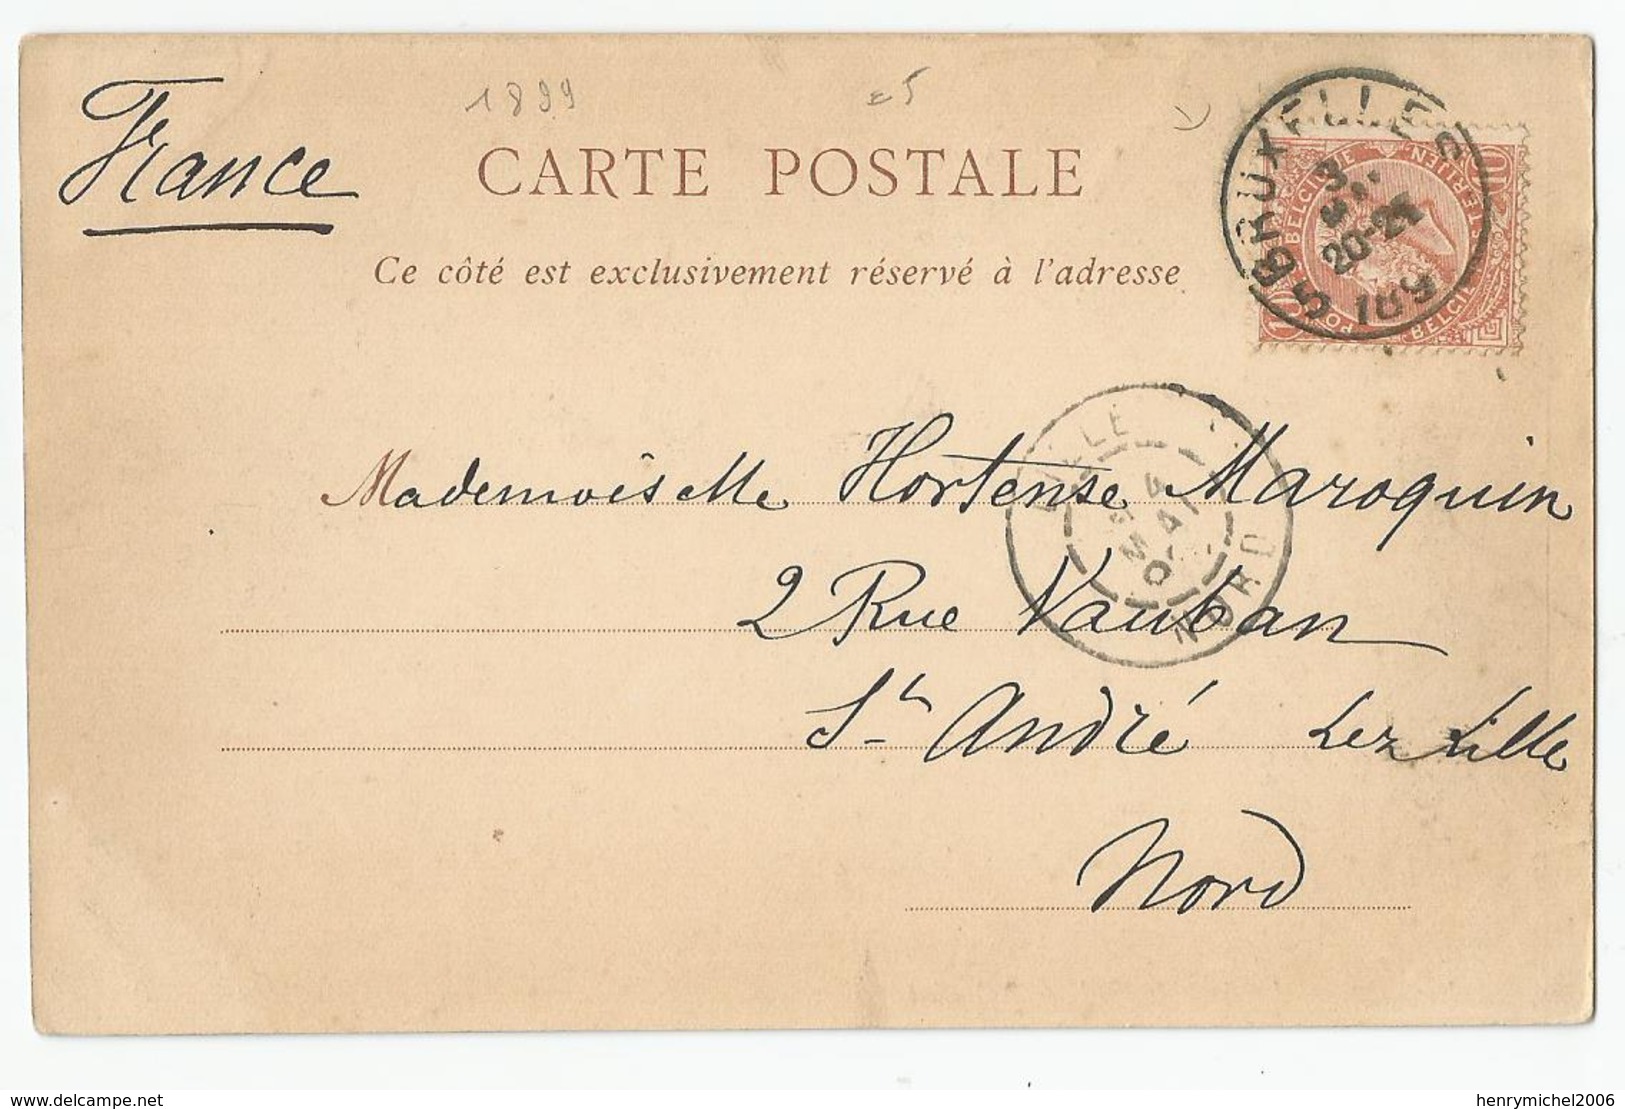 1899
France
CARTE POSTALE
Ce côté est exclusivement réservé à l'adresse
5 BRUXELLES
3
20-21
BELGIE
BELGIE
LILLE
MAI
NORD
Mademoiselle Hortense Maroquin
2 Rue Vauban
St André Lez Lille
Nord
delcampe.net
henrymichel2006